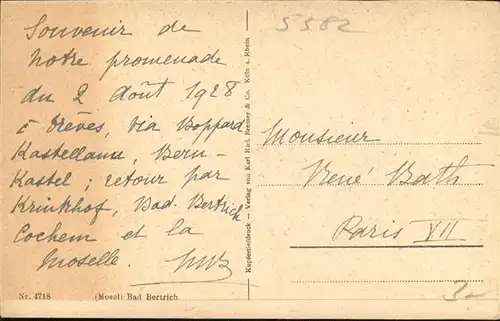 Souvenir de
notre promenade
du 2 Août 1928
à Trèves, via Boppard
Kastellaun, Bern-
Kastel; retour par
Krinkhof, Bad. Bertrich
Cochem et la
Moselle.
5582
Monsieur
René Bath
Paris VII
Kupfertiefdruck – Verlag von Karl Rud. Bremer & Co. Köln a. Rhein
Nr. 4718 (Mosel) Bad Bertrich